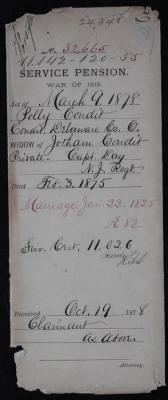 29,848
No. 32,665
11,142-120-55
SERVICE PENSION.
WAR OF 1812.
Act of March 9, 1878
Polly Condit
Condit, Delaware Co. O.
WIDOW of Jotham Condit
Private - Capt. Day
N.J. Regt.
Died Feb. 3, 1875
Marriage Jan. 22, 1825
A 82
Sur. Cert. 11,026
Received Oct. 19 1878
Claimant
as above
Attorney.